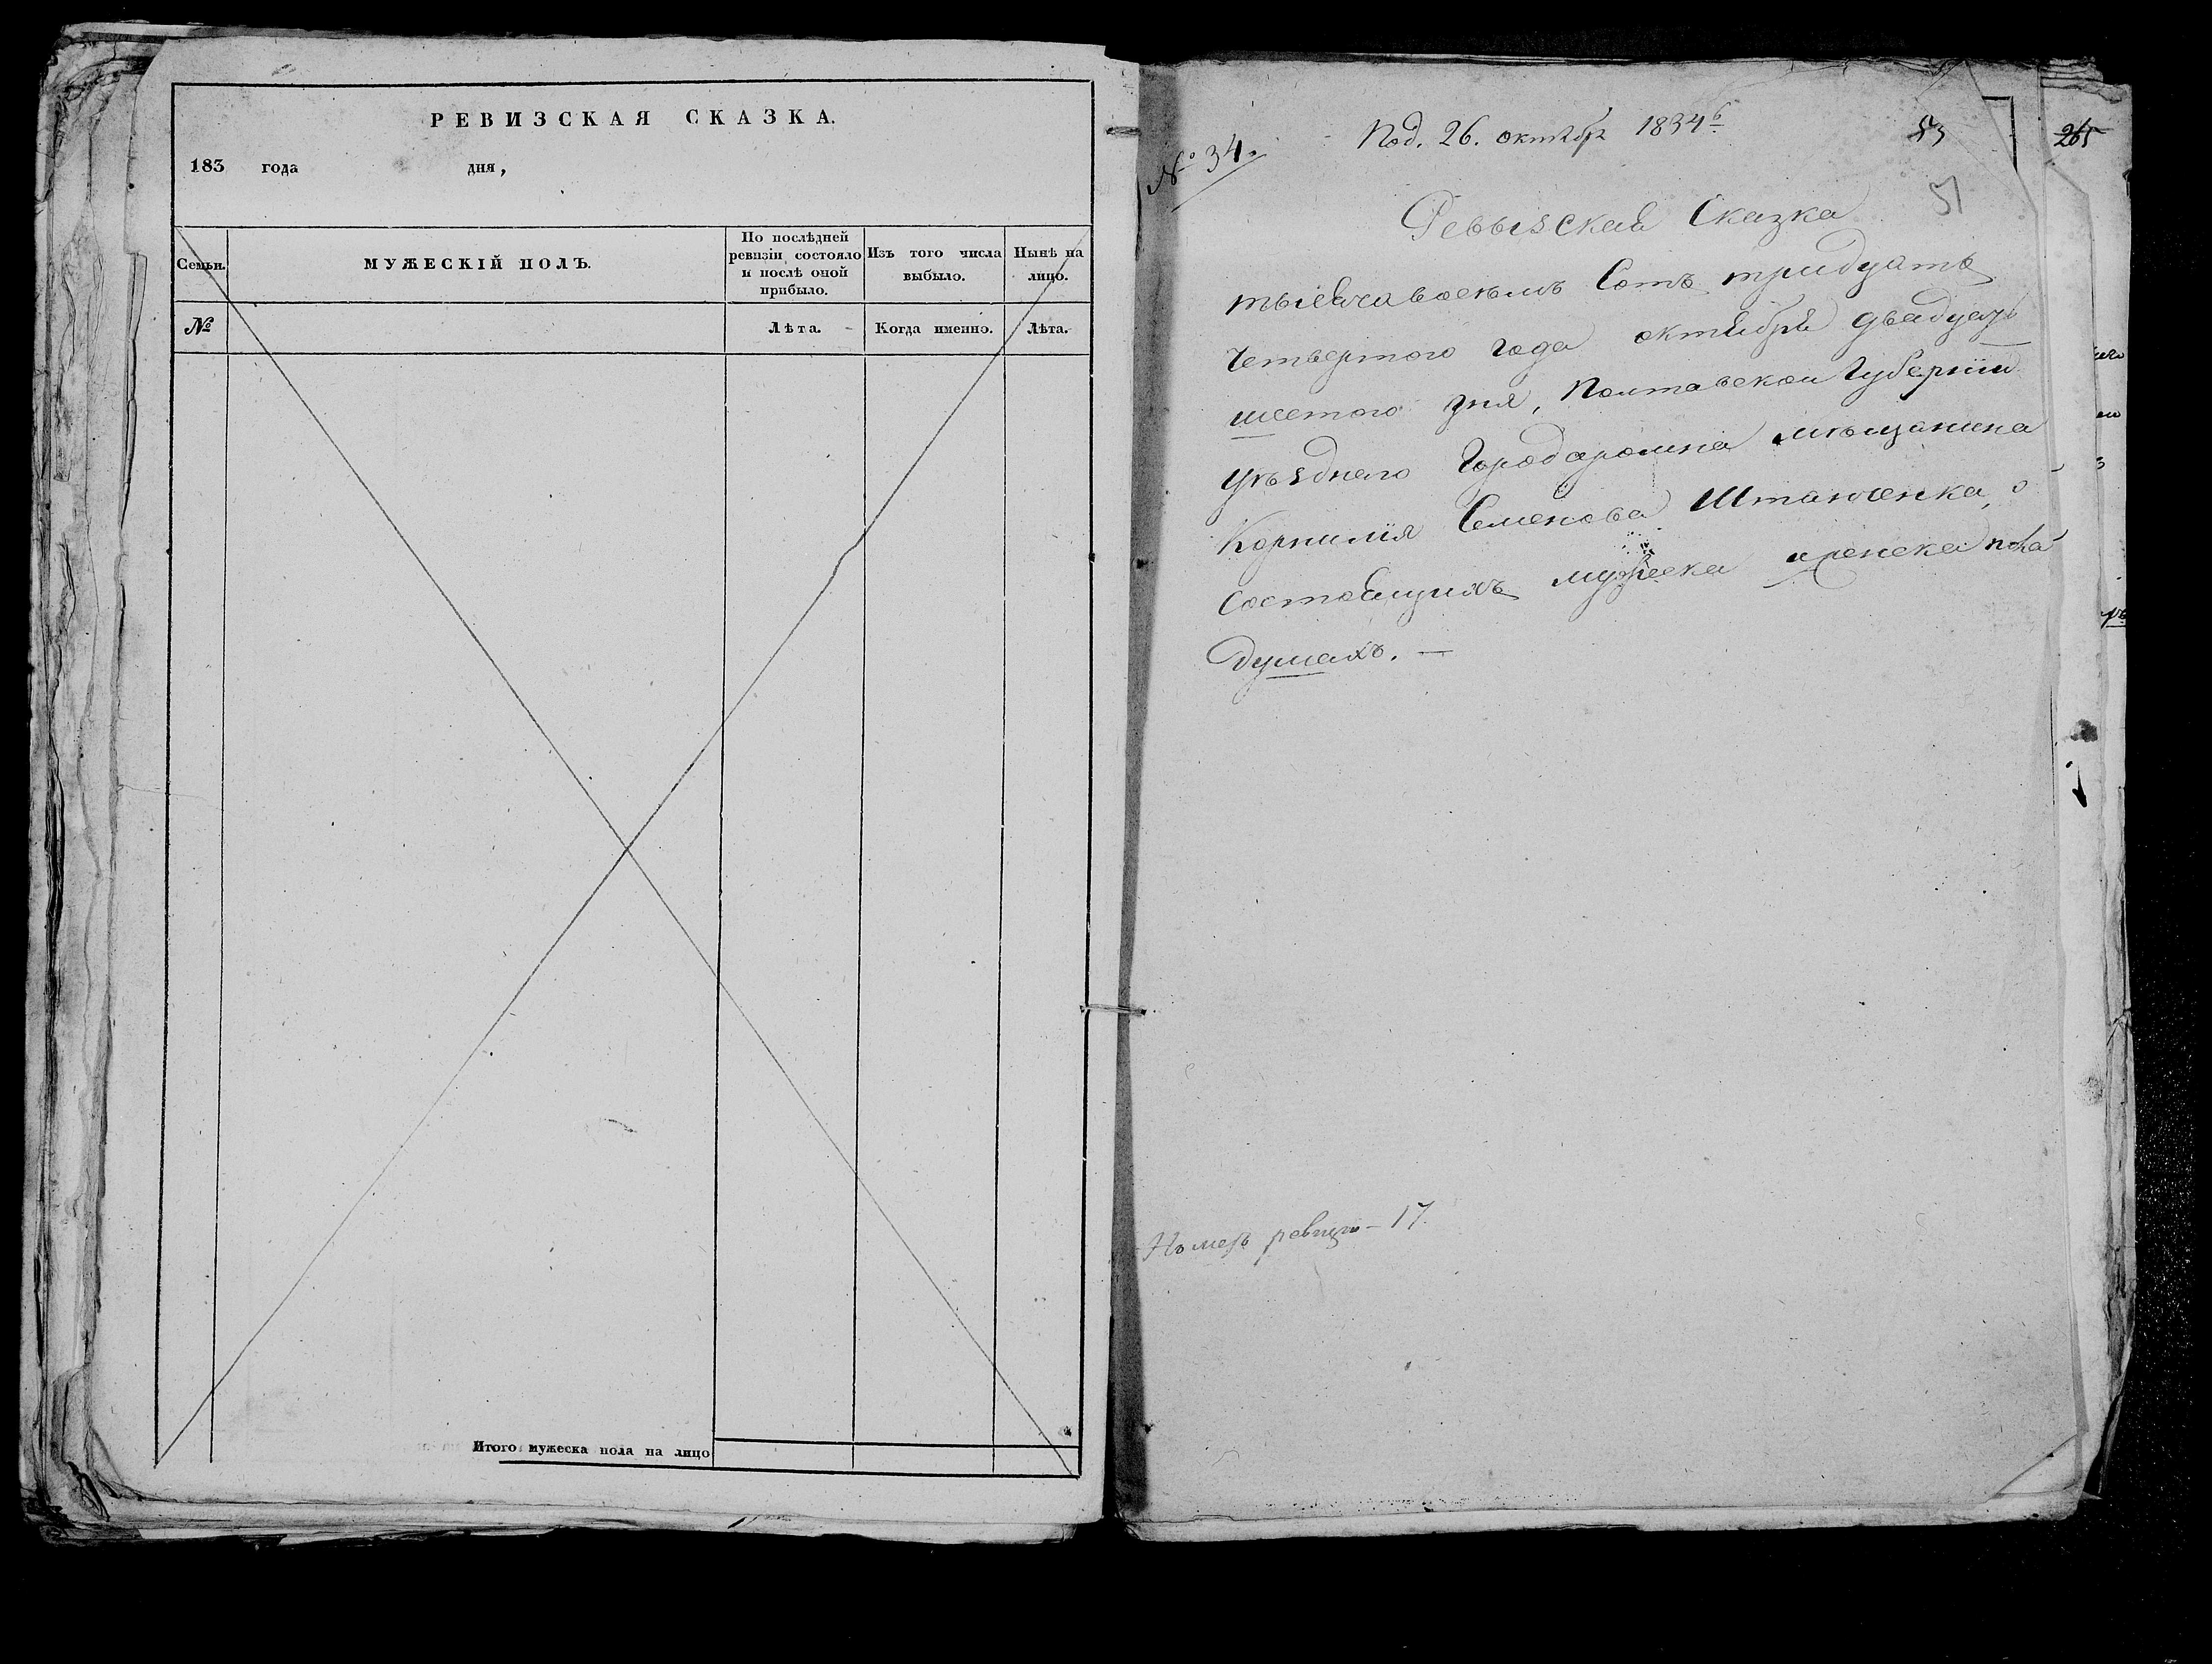 РЕВИЗСКАЯ СКАЗКА.
183 года дня,
Семьи.
МУЖЕСКІЙ ПОЛЪ.
По послѣдней
ревизіи состояло
и послѣ оной
прибыло.
Изъ того числа
выбыло.
Нынѣ на
лицо.
№
Лѣта.
Когда именно.
Лѣта.
Итого мужеска пола на лицо
№ 34.
Под. 26. октября 1834
53
265
51
Ревызская Сказка
тысяча восемъ Сотъ тридцать
Четвертого года октября двадцать
шестого дня, Полтавской Губерніи
уѣзднаго Города ромна мѣщанина
Корнилія Семенова Штанченка, о
состоящихъ мужеска и женска пола
душахъ. —
Номеръ ревизіи – 17.